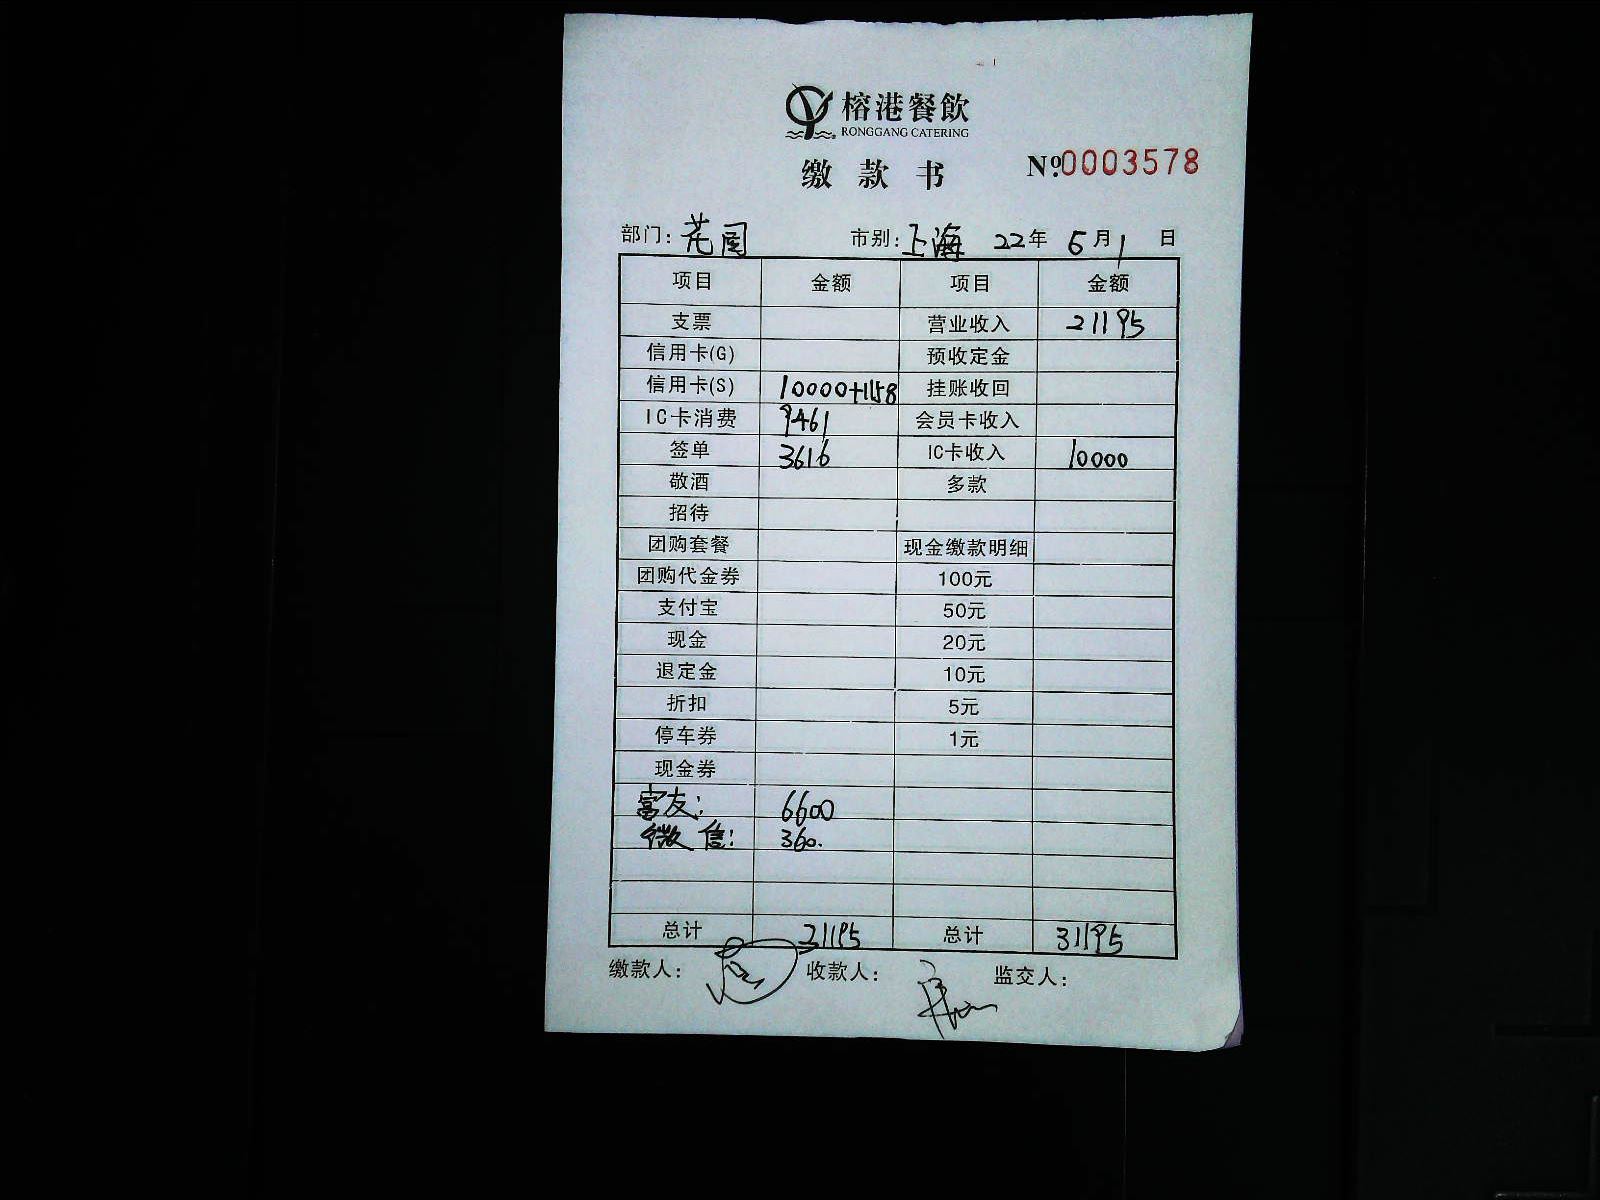 榕港餐飲
RONGGANG CATERING
缴款书 №0003578
部门：花园 市别：上海 22年 6月1日
项目 金额 项目 金额
支票 营业收入 21195
信用卡(G) 预收定金
信用卡(S) 10000+1158 挂账收回
IC卡消费 9461 会员卡收入
签单 3616 IC卡收入 10000
敬酒 多款
招待
团购套餐 现金缴款明细
团购代金券 100元
支付宝 50元
现金 20元
退定金 10元
折扣 5元
停车券 1元
现金券
富友： 6600
微信： 360.
总计 31195 总计 31195
缴款人： 收款人： 监交人：